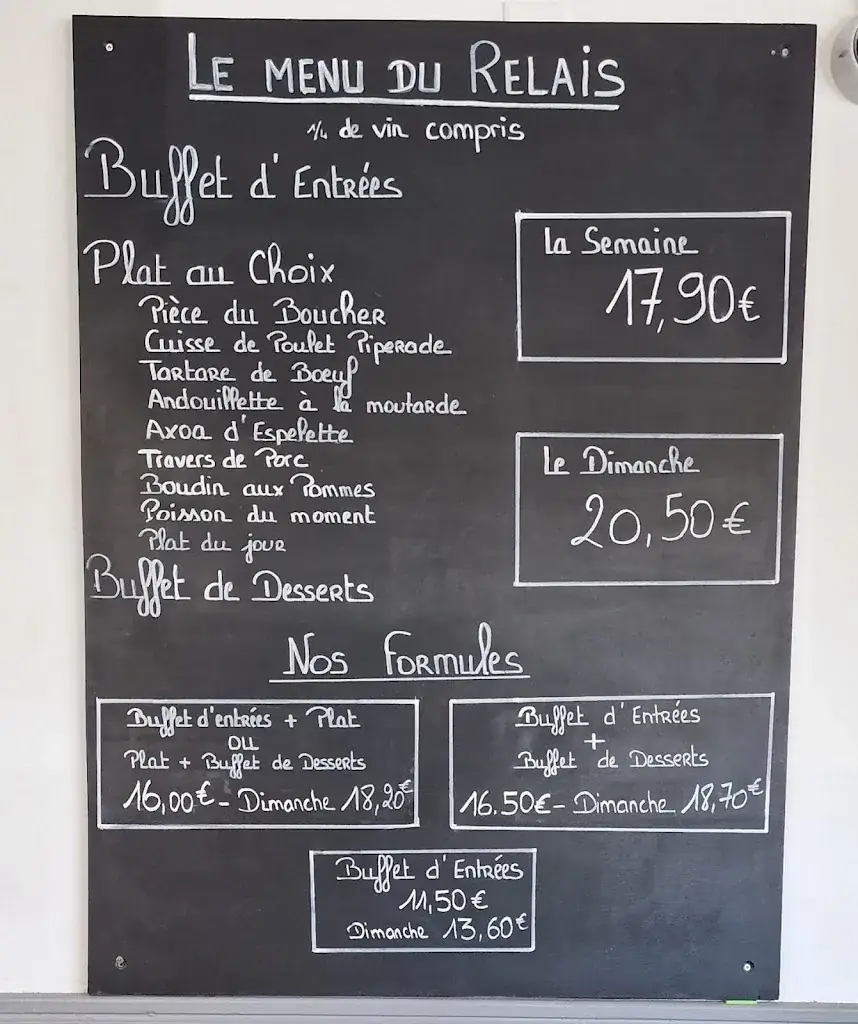 LE MENU DU RELAIS
1/4 de vin compris
Buffet d'Entrées
La Semaine
17,90€
Plat au Choix
Pièce du Boucher
Cuisse de Poulet Piperade
Tartare de Boeuf
Andouillette à la moutarde
Axoa d'Espelette
Travers de Porc
Boudin aux Pommes
Poisson du moment
Plat du jour
Le Dimanche
20,50€
Buffet de Desserts
Nos Formules
Buffet d'entrées + Plat
OU
Plat + Buffet de Desserts
16,00€ - Dimanche 18,20€
Buffet d'Entrées
+
Buffet de Desserts
16.50€ - Dimanche 18,70€
Buffet d'Entrées
11,50€
Dimanche 13,60€